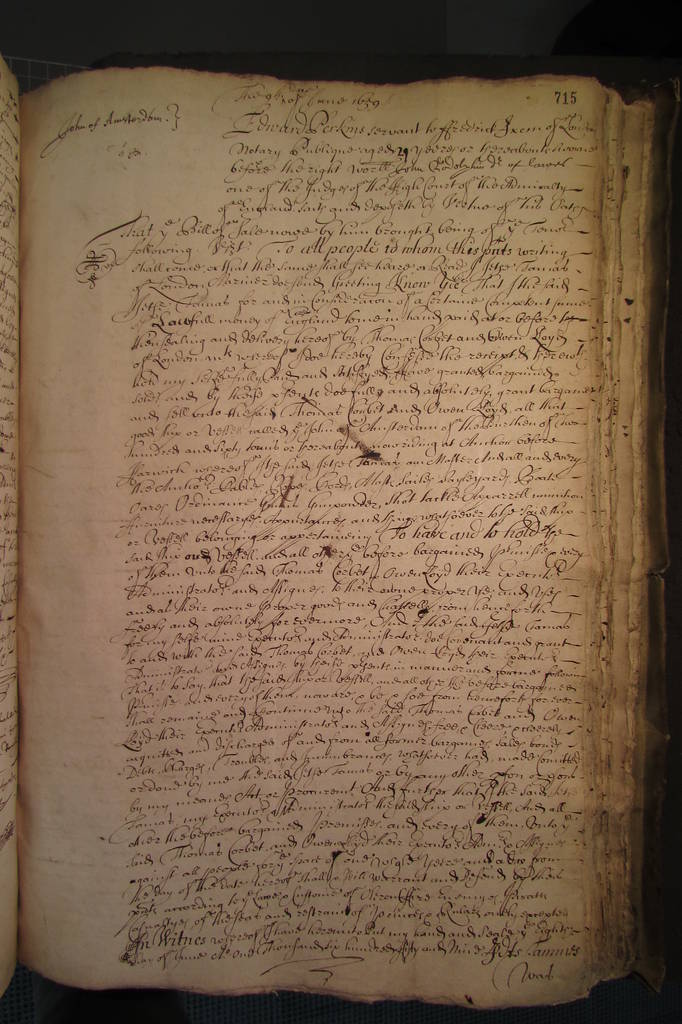 The 9th day of June 1659
715
John of Amsterdam.}
Edward Perkins servant to ffrederick Ixem of London
Notary Publique aged 29 yeeres or thereabouts sworne
before the right worll John Godolphin Dr of lawes
one of the Judges of the High Court of the Admiralty
of England saith and deposeth by Vertue of his Oath
That ye Bill of Sale nowe by him brought, being of ye Tenor
following. Vizt. To all people to whom this pnts writing
shall come, or that the same shall see heare or Read I Jetse Tamas
of London Marriner doe send Greeting. Know Yee That I the said
Jetse Tamas for and in Consideracon of a certaine competent summe
of Lawfull money of England to me in hand paid at or before the
ensealing and delivery hereof by Thomas Corbet and Owen Loyd
of London whereof I doe hereby Confesse the receipt &
my Selfe fully and Satisfyed, Have granted, bargained
sold and by these pnts doe fully and absolutely, grant bargaine
and sell unto the said Thomas Corbet and Owen Loyd, all that
good ship or Vessell called ye John of Amsterdam of the burthen of two
hundred and sixty touns or thereabouts now riding at Anchor before
Harwich whereof I the said Jetse Tamas am Master And all and every
the Anchors Cables Ropes Cords, Masts Sailes Saileyards, Boate
Oares Ordinance Gunns Gunpowder, Shot tackle Apparrell munition
furniture necessaryes Appurtences and things whatsoever to the said ship
or Vessell belonging or appertaineing To have and to hold the
said ship and Vessell and all other ye before bargained premisses & every
of them Unto the said Thomas Corbet & Owen Loyd their Executors
Administrators and Assignes to their owne proper Use and Uses
and as their owne proper goods and Chattells from henceforth
freely and absolutely for evermore, And I the said Jetse Tamas
for my selfe mine Executors and Administrators doe Covenant and grant
to and with the said Thomas Corbet, and Owen Loyd their Executors
Administrators and Assignes by these pnts in manner and forme following
That is to say, that the said ship or Vessell, and all other ye before bargained
premisses and every of them, now are, & be & soe from henceforth for ever
shall remaine and Continue unto the said Thomas Corbet and Owen
Loyd their Executors Administrators and Assignes free & cleere & cleerely
acquitted and discharged of and from all former bargaines Sales bonds
Debts, Charges, Troubles and incumbrances whatsoever had, made comitted
or done by me the said Jetse Tamas or by any other pson or psons
by my meanes Act or procurement And further that I the said Jetse
Tamas, my Executors & Administrators the said ship or Vessell, And all
other the before bargained premisses and every of them, Unto ye
said Thomas Corbet, and Owen Loyd their Executors Admrs & Assignes
against all people for ye space of one whole Yeere and a day from
the day of the date hereof shall & Will warrant and defend by these
pnts according to ye Lawe & Custome of Oleron (fire Enemyes Pyratts
dangers of the Seas and restraint of Princes & Rulers onely excepted
In Witnes whereof I have hereunto put my hand and Seale ye Eighth
day of June Ao one thousand six hundred fifty and Nine Jets Tammes
was